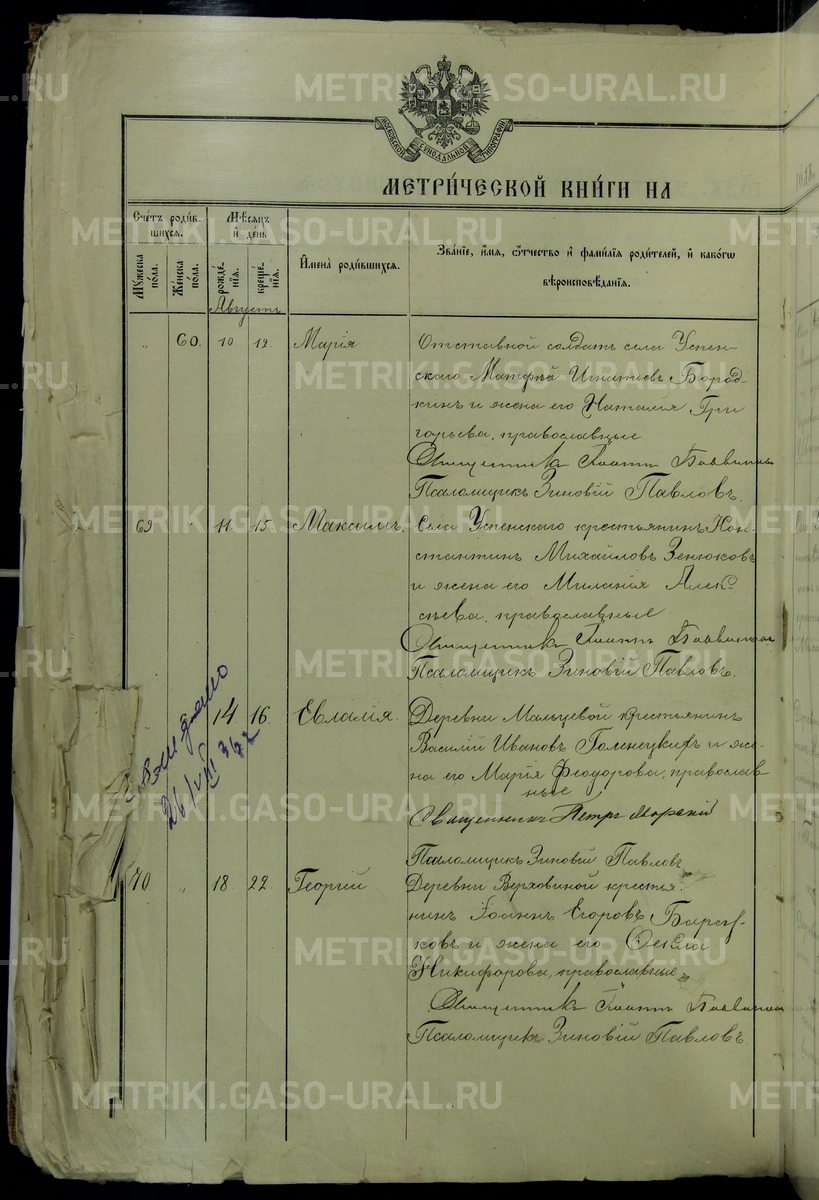 METRIKI.GASO-URAL.RU
МОСКОВСКОЙ СѴНОДАЛЬНОЙ ТИПОГРАФІИ
МЕТРИ́ЧЕСКОЙ КНИ́ГИ НА
Сче́тъ роди́в-
шихся.
Му́жеска по́ла.
Же́нска по́ла.
Мѣ́сяцъ
и҆ де́нь
рожде́нія.
креще́нія.
И҆мена̀ роди́вшихся.
Зва́ніе, и҆́мя, ѻ҆́тчество и҆ фами́лія роди́телей, и҆ како́гѡ
вѣроисповѣ́данія.
Августъ
60. 10 12. Марія
Отставной солдатъ села Успен-
скаго Матѳѣй Игнатіевъ Бород-
кинъ и жена его Наталія Гри
горьева, православные
Священникъ
Псаломщикъ Зиновій Павловъ.
69 11 15 Максимъ.
Села Успенскаго крестьянинъ Кон-
стантинъ Михайловъ Зенюковъ
и жена его Миланія Алек-
сѣева, православные
Священникъ
Псаломщикъ Зиновій Павловъ.
14 16 Евлалія.
Деревни Мальцевой крестьянинъ
Василій Ивановъ и же-
на его Марія Ѳеодорова, православ
ные
Священникъ Петръ
Псаломщикъ Зиновій Павловъ
26/VIII
70 " 18 22 Георгій
Деревни Верховиной крестья-
нинъ Іоаннъ Егоровъ
и жена его Ѳекла
Никифорова, православные
Священникъ
Псаломщикъ Зиновій Павловъ